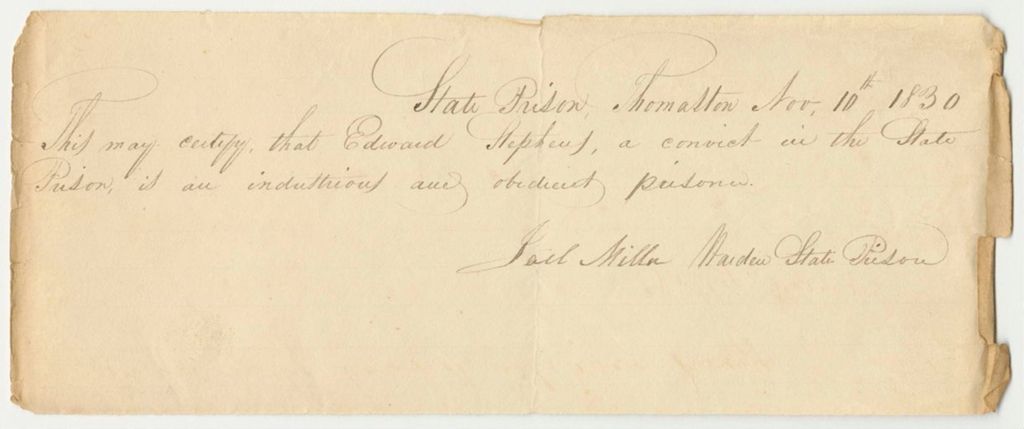 State Prison, Thomaston Nov, 10th 1830
This may certify, that Edward Stephens, a convict in the State
Prison, is an industrious and obedient prisoner.
Joel Miller Warden State Prison